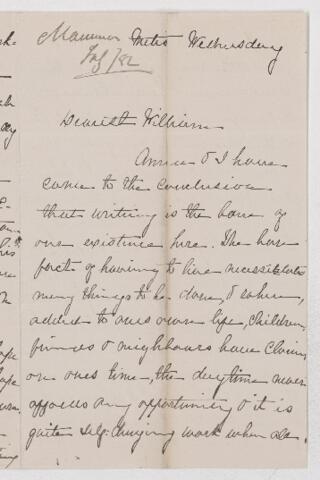 Mannum Metis Wednesday
July /82
Dearest William
Annie & I have
come to the conclusion
that writing is the bane of
our existence here. The bare
fact of having to live necessitates
many things to be done, & when,
added to ones own life, children,
& neighbours have claims
on ones time, the daytime never
affords any opportunity & it is
quite self-denying work when all